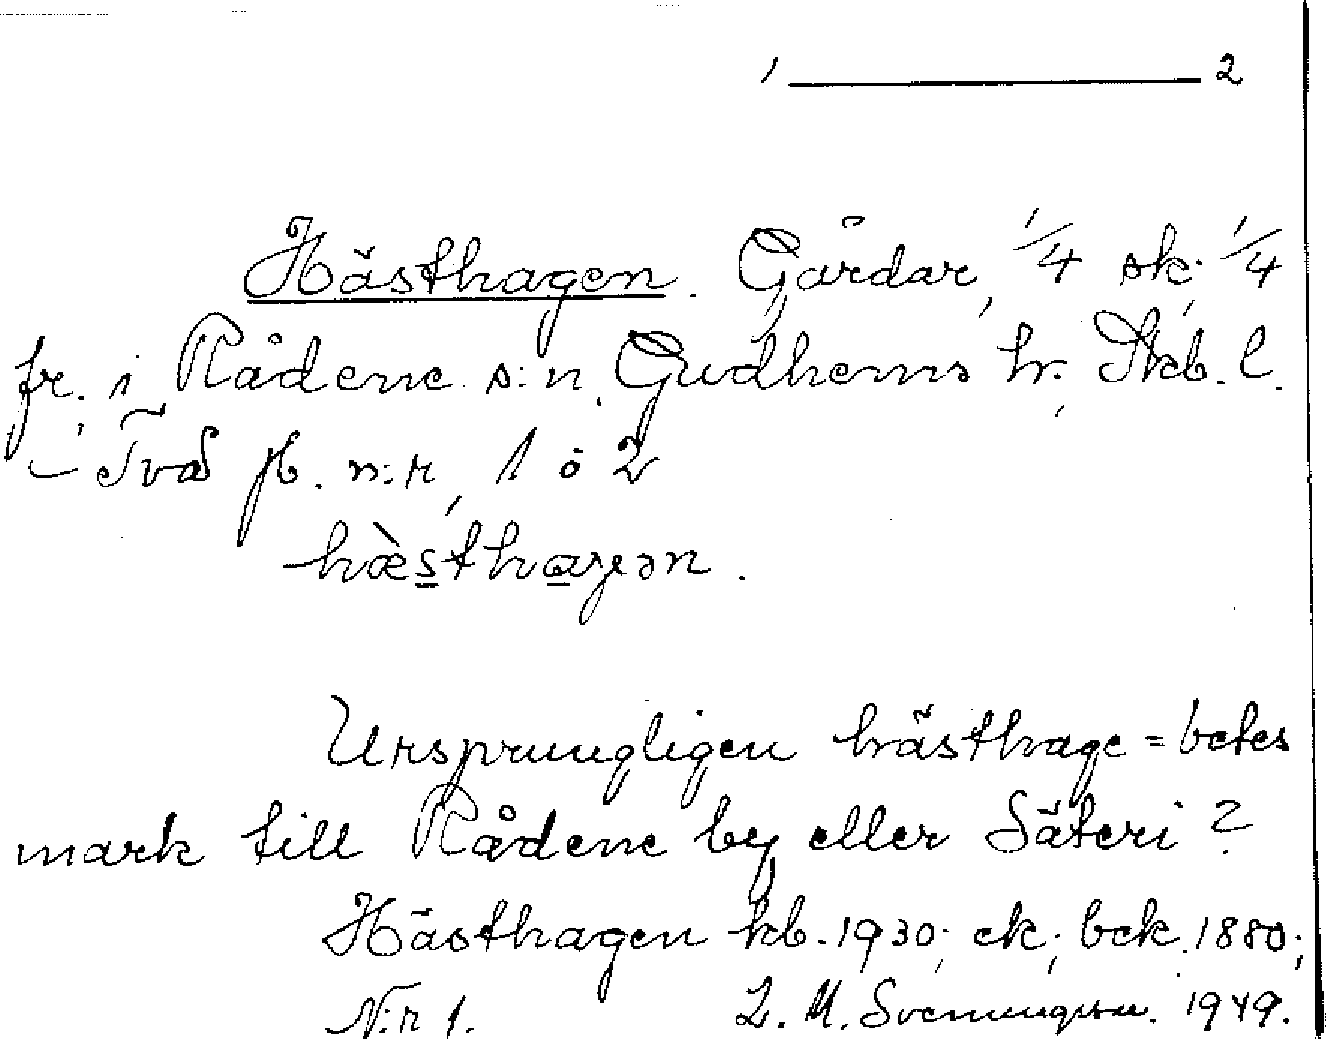 1 ____________ 2
Hästhagen. Gårdar, 1/4 sk; 1/4
fr. i Rådene s:n, Gudhems hr. Skb. l.
– Två jb. n:r, 1 o 2
hæ̀sthaɣən.
Ursprungligen hästhage = betes
mark till Rådene by eller Säteri?
Hästhagen kb. 1930; ek; bek. 1880;
N:r 1. L. M. Svenungsson. 1949.